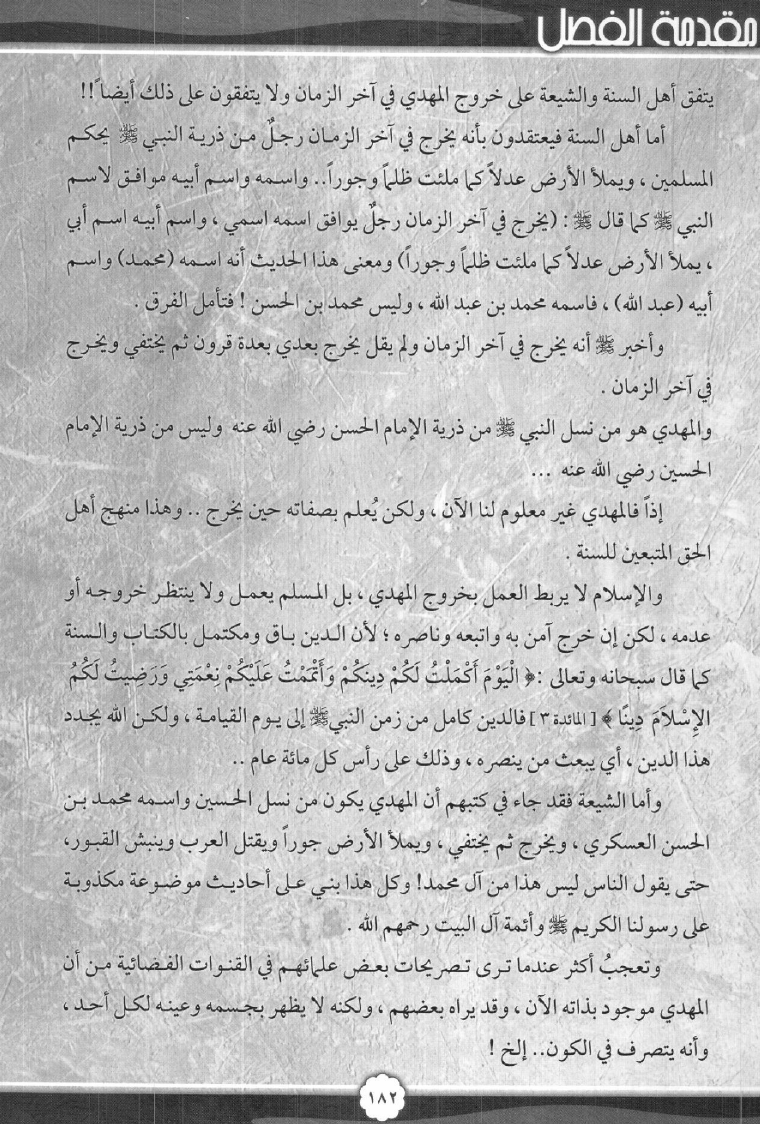 مقدمة الفصل
يتفق أهل السنة والشيعة على خروج المهدي في آخر الزمان ولا يتفقون على ذلك أيضاً!!
أما أهل السنة فيعتقدون بأنه يخرج في آخر الزمان رجلٌ من ذرية النبي ﷺ يحكم
المسلمين ، ويملأ الأرض عدلاً كما ملئت ظلماً وجوراً.. واسمه واسم أبيه موافق لاسم
النبي ﷺ كما قال ﷺ : (يخرج في آخر الزمان رجلٌ يوافق اسمه اسمي ، واسم أبيه اسم أبي
، يملأ الأرض عدلاً كما ملئت ظلماً وجوراً) ومعنى هذا الحديث أنه اسمه (محمد) واسم
أبيه (عبد الله) ، فاسمه محمد بن عبد الله ، وليس محمد بن الحسن ! فتأمل الفرق .
وأخبر ﷺ أنه يخرج في آخر الزمان ولم يقل يخرج بعدي بعدة قرون ثم يختفي ويخرج
في آخر الزمان .
والمهدي هو من نسل النبي ﷺ من ذرية الإمام الحسن رضي الله عنه وليس من ذرية الإمام
الحسين رضي الله عنه ...
إذاً فالمهدي غير معلوم لنا الآن ، ولكن يُعلم بصفاته حين يخرج .. وهذا منهج أهل
الحق المتبعين للسنة .
والإسلام لا يربط العمل بخروج المهدي ، بل المسلم يعمل ولا ينتظر خروجه أو
عدمه ، لكن إن خرج آمن به واتبعه وناصره ؛ لأن الدين باق ومكتمل بالكتاب والسنة
كما قال سبحانه وتعالى :﴿ الْيَوْمَ أَكْمَلْتُ لَكُمْ دِينَكُمْ وَأَتْمَمْتُ عَلَيْكُمْ نِعْمَتِي وَرَضِيتُ لَكُمُ
الإِسْلاَمَ دِينًا ﴾ [ المائدة ٣ ] فالدين كامل من زمن النبي ﷺ إلى يوم القيامة ، ولكن الله يجدد
هذا الدين ، أي يبعث من ينصره ، وذلك على رأس كل مائة عام ..
وأما الشيعة فقد جاء في كتبهم أن المهدي يكون من نسل الحسين واسمه محمد بن
الحسن العسكري ، ويخرج ثم يختفي ، ويملأ الأرض جوراً ويقتل العرب وينبش القبور،
حتى يقول الناس ليس هذا من آل محمد! وكل هذا بني على أحاديث موضوعة مكذوبة
على رسولنا الكريم ﷺ وأئمة آل البيت رحمهم الله .
وتعجبُ أكثر عندما ترى تصريحات بعض علمائهم في القنوات الفضائية من أن
المهدي موجود بذاته الآن ، وقد يراه بعضهم ، ولكنه لا يظهر بجسمه وعينه لكل أحد ،
وأنه يتصرف في الكون.. إلخ !
١٨٢